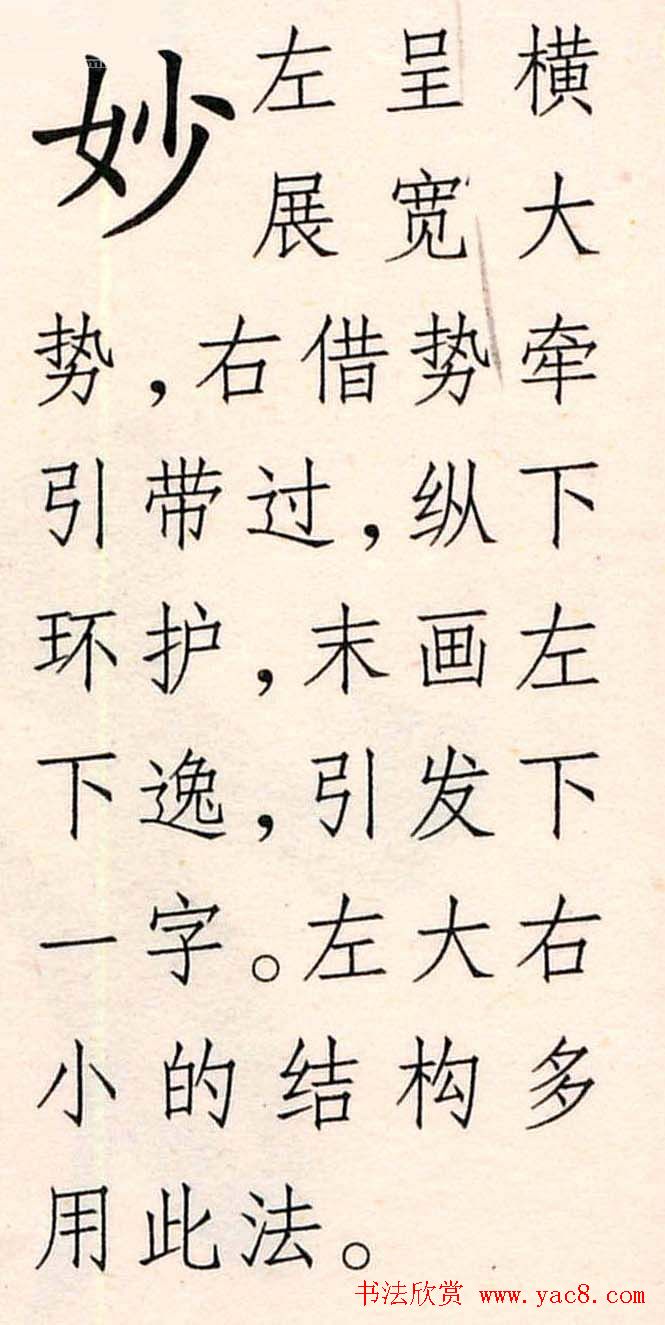 妙
左呈横
展宽大
势，右借势牵
引带过，纵下
环护，末画左
下逸，引发下
一字。左大右
小的结构多
用此法。
书法欣赏 www.yac8.com